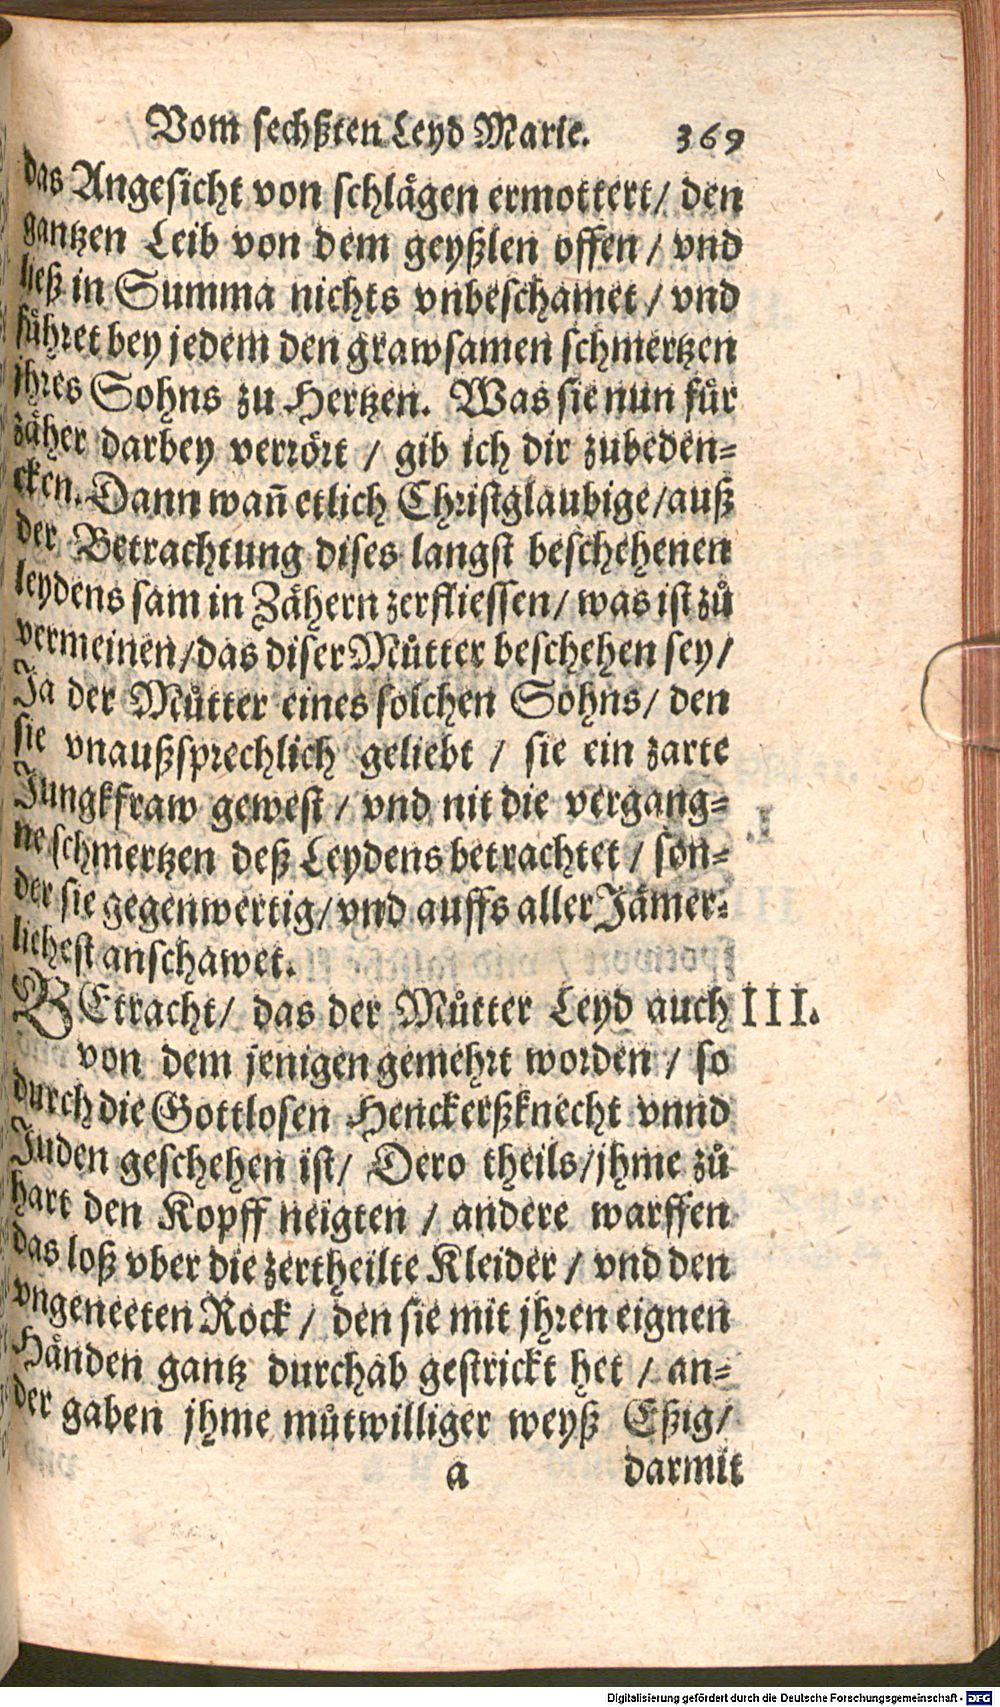 Vom sechßten Leyd Marie. 369
das Angesicht von schlägen ermottert/ den
gantzen Leib von dem geyßlen offen / vnd
ließ in Summa nichts vnbeschamet / vnd
führet bey jedem den grawsamen schmertzen
jhres Sohns zu Hertzen. Was sie nun für
zäher darbey verrört / gib ich dir zubeden-
cken. Dann wañ etlich Christglaubige/auß
der Betrachtung dises langst beschehenen
leydens sam in Zähern zerfliessen/ was ist zů
vermeinen/das diser Můtter beschehen sey/
Ja der Můtter eines solchen Sohns/ den
sie vnaußsprechlich geliebt / sie ein zarte
Jungkfraw gewest / vnd nit die vergang-
ne schmertzen deß Leydens betrachtet / son-
der sie gegenwertig/ vnd auffs aller Jämer-
lichest anschawet.
BEtracht/ das der Můtter Leyd auch III.
von dem jenigen gemehrt worden / so
durch die Gottlosen Henckerßknecht vnnd
Juden geschehen ist/ Dero theils/jhme zů
hart den Kopff neigten / andere warffen
das loß vber die zertheilte Kleider / vnd den
vngeneeten Rock / den sie mit jhren eignen
Händen gantz durchab gestrickt het / an-
der gaben jhme můtwilliger weyß Eßig/
a darmit
Digitalisierung gefördert durch die Deutsche Forschungsgemeinschaft - DFG